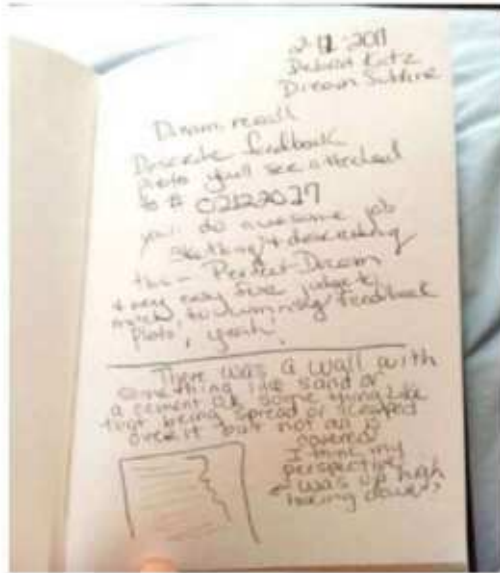 2-12-2017
Debra Katz
Dream
Dream recall
Describe feedback
photo you'll see attached
to # 02122017
you'll do awesome job
sketching & describing
this - Perfect Dream
& very easy for judge to
match to feedback
Photo, yeah!
There was a wall with
something like sand or
a cement or something like
that being spread or scraped
over it but not all is
covered
I think my
perspective
was up high
looking down?